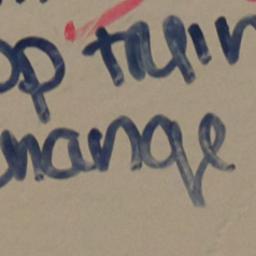 op takin
hange